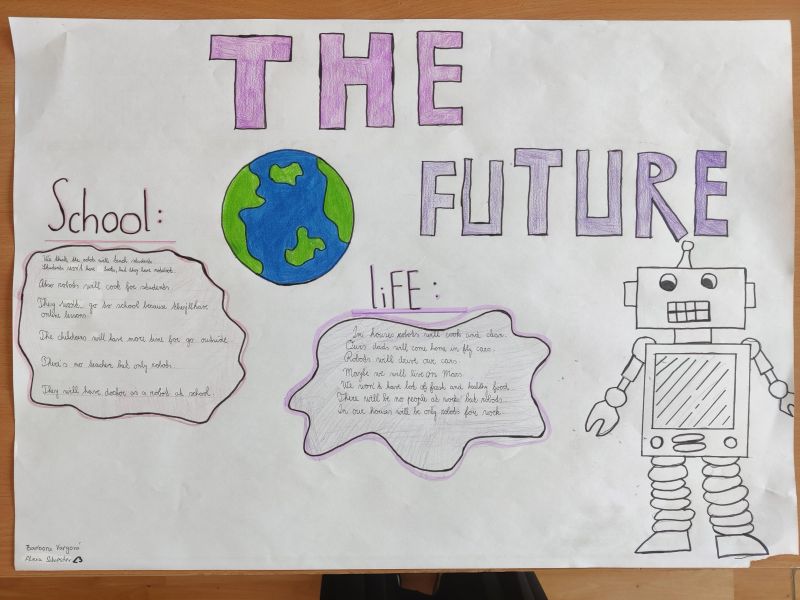 THE
FUTURE
School:
We think the robots will teach students.
Students won't have books, but they have notebook.
Also robots will cook for students.
They won't go to school because they'll have
online lessons.
The childrens will have more time for go outside.
There's no teacher but only robots...
They will have doctor as a robot at school.
liFE:
In houses robots will cook and clean.
Ours dads will come home in fly cars.
Robots will drive our cars.
Maybe we will live on Mars.
We won't have lot of fresh and healthy food.
There will be no people at work but robots...
In our houses will be only robots for work.
Barbora Vargová
Schuster